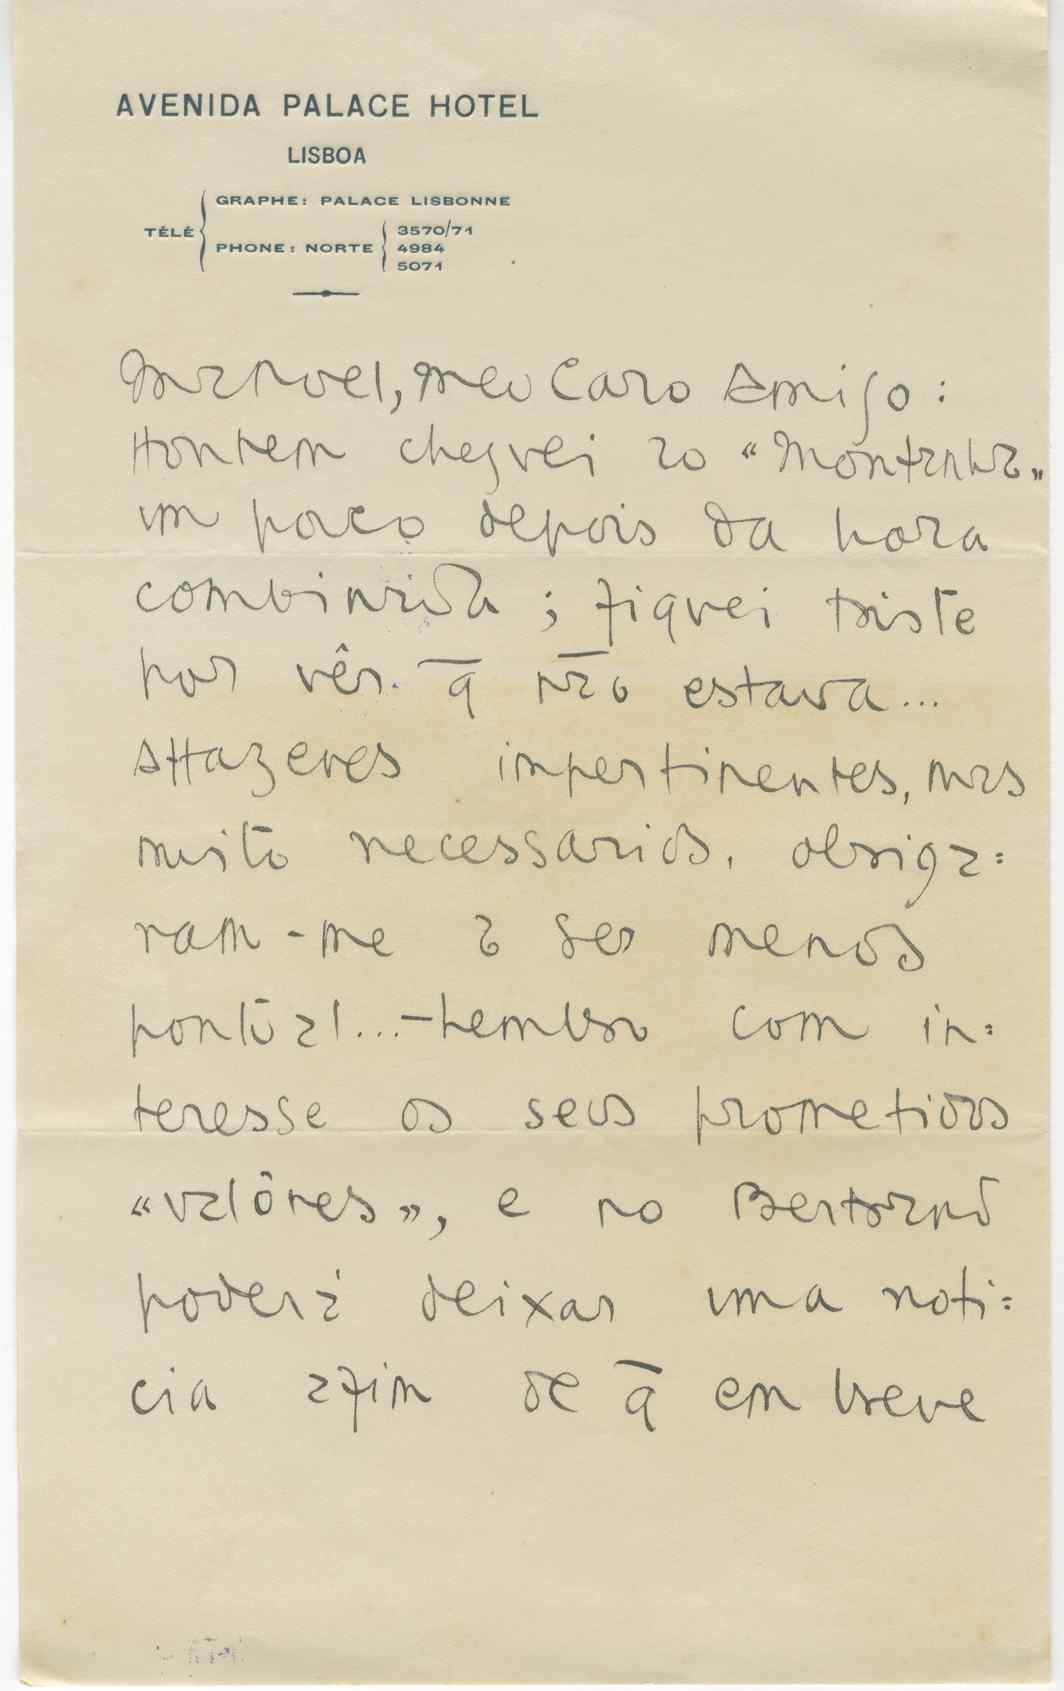 AVENIDA PALACE HOTEL
LISBOA
TÉLÉ
GRAPHE: PALACE LISBONNE
PHONE: NORTE
3570/71
4984
5071
Manoel, meu Caro Amigo:
Hontem cheguei ao «Montanha»
um pouco depois da hora
combinada; fiquei triste
por vêr. q̄ não estava...
Affazeres impertinentes, mas
muito necessarios, obriga=
ram-me a ser menos
pontual...-Lembro com in=
teresse os seus prometidos
«valôres», e no Bertrand
poderá deixar uma noti=
cia afim de q̄ em breve